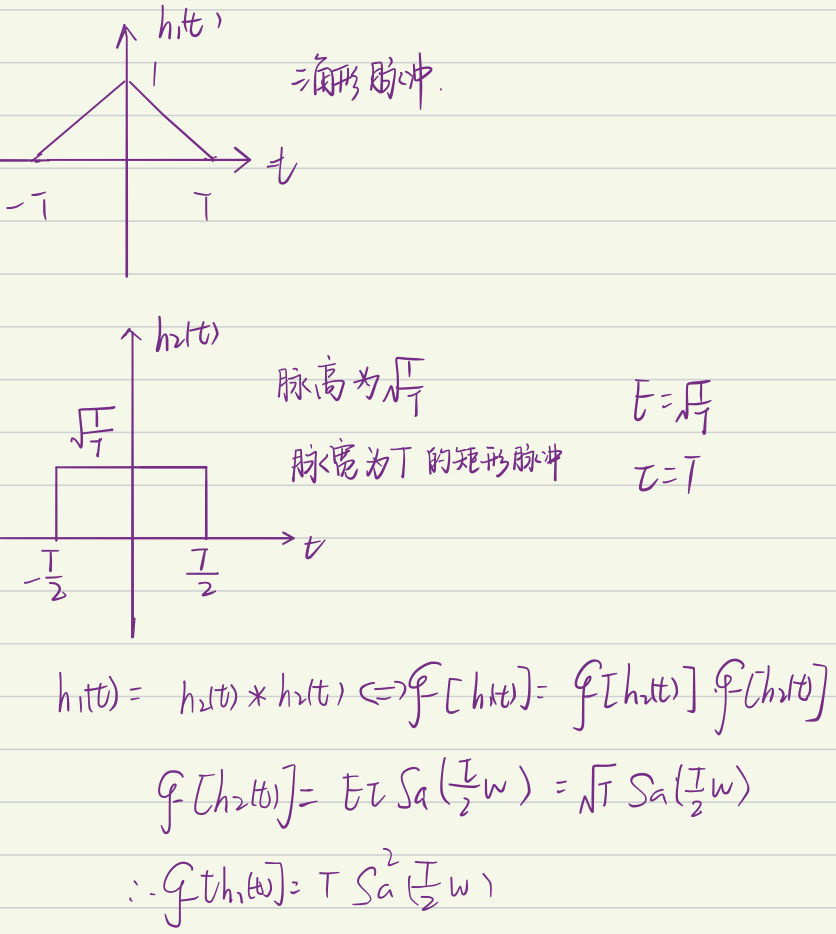 h₁(t)
1
三角形脉冲.
t
-T
T
h₂(t)
√(1/T)
脉高为√(1/T)
E=√(1/T)
脉宽为T的矩形脉冲
τ=T
t
-T/2
T/2
h₁(t) = h₂(t) * h₂(t) <=> ℱ[h₁(t)] = ℱ[h₂(t)] ℱ[h₂(t)]
ℱ[h₂(t)] = Eτ Sa(τ/2 w) = √T Sa(T/2 w)
∴ ℱ[h₁(t)] = T Sa²(T/2 w)